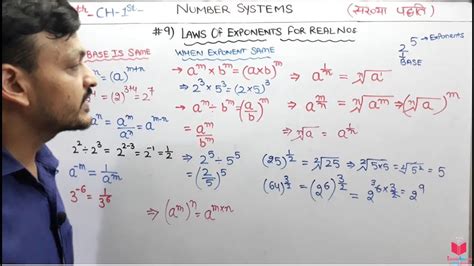 th- CH-1st- NUMBER SYSTEMS (संख्या पद्धति)
#9) LAWS OF EXPONENTS FOR REAL NOS
BASE IS SAME
= a^(m+n)
= (2)^(3+4) = 2^7
= a^m/a^n = a^(m-n)
2^2 ÷ 2^3 = 2^(2-3) = 2^(-1) = 1/2
a^(-m) = 1/a^m
3^(-6) = 1/3^6
WHEN EXPONENT SAME
→ a^m × b^m = (a×b)^m
⇒ 2^3 × 5^3 = (2×5)^3
→ a^m ÷ b^m = (a/b)^m
= a^m/b^m
⇒ 2^5 ÷ 5^5
= (2/5)^5
⇒ (a^m)^n = a^(m×n)
2^5 → EXPONENT
↓
BASE
→ a^(1/n) = ⁿ√a
→ a^(m/n) = ⁿ√a^m ⇒ (ⁿ√a)^m
⇒ ⁿ√a = a^(1/n)
(25)^(1/2) = ²√25 = ²√5×5 =
(64)^(3/2) = (2^6)^(3/2) = 2^(6×3/2) = 2^9